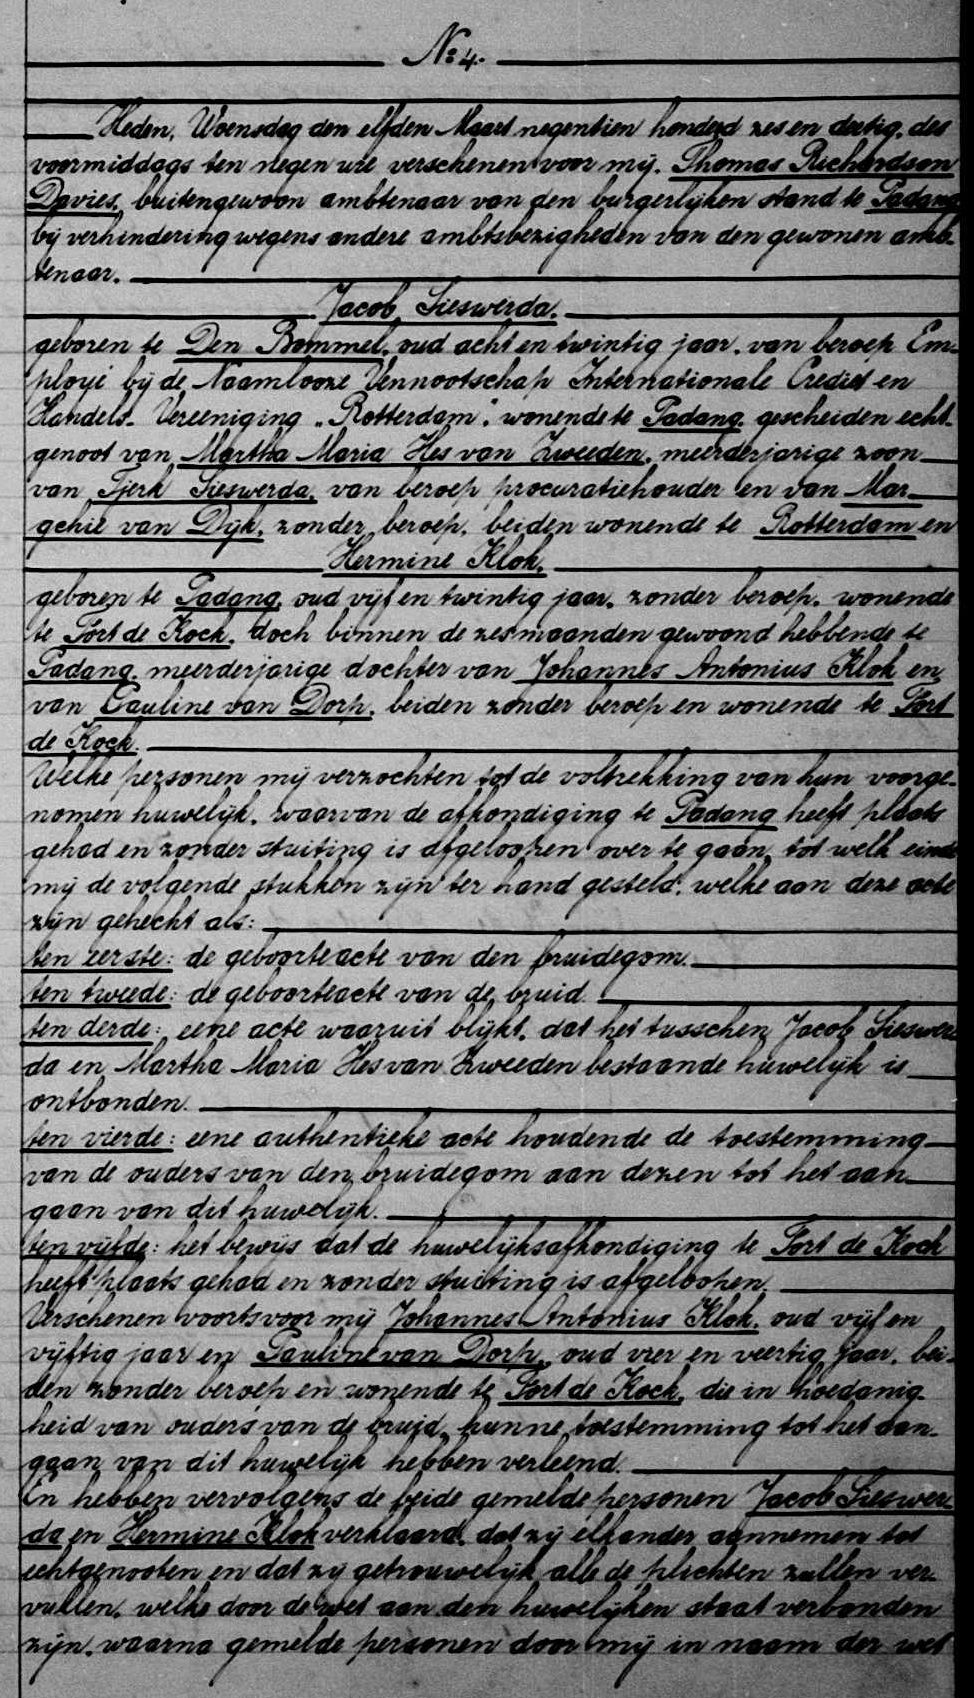 No 4.
Heden, Woensdag den elfden Maart negentien honderd zes en dertig, des
voormiddags ten negen ure verschenen voor mij, Thomas Richardson
Davies, buitengewoon ambtenaar van den burgerlijken stand te Padang
bij verhindering wegens andere ambtsbezigheden van den gewonen amb-
tenaar.
Jacob Sieswerda,
geboren te Den Bommel, oud acht en twintig jaar, van beroep Em-
ployé bij de Naamlooze Vennootschap Internationale Crediet en
Handels- Vereeniging "Rotterdam", wonende te Padang, gescheiden echt-
genoot van Martha Maria Hes van Zweeden, meerderjarige zoon
van Tjerk Sieswerda, van beroep procuratiehouder en van Mar-
gchie van Dijk, zonder beroep, beiden wonende te Rotterdam en
Hermine Klok,
geboren te Padang, oud vijf en twintig jaar, zonder beroep, wonende
te Fort de Kock, doch binnen de zes maanden gewoond hebbende te
Padang, meerderjarige dochter van Johannes Antonius Klok en
van Pauline van Dorp, beiden zonder beroep en wonende te Fort
de Kock.
Welke personen mij verzochten tot de voltrekking van hun voorge-
nomen huwelijk, waarvan de afkondiging te Padang heeft plaats
gehad en zonder stuiting is afgeloopen over te gaan, tot welk einde
mij de volgende stukken zijn ter hand gesteld, welke aan deze acte
zijn gehecht als:
ten eerste: de geboorteacte van den bruidegom.
ten tweede: de geboorteacte van de bruid.
ten derde: eene acte waaruit blijkt, dat het tusschen Jacob Sieswer-
da en Martha Maria Hes van Zweeden bestaande huwelijk is
ontbonden.
ten vierde: eene authentieke acte houdende de toestemming
van de ouders van den bruidegom aan dezen tot het aan-
gaan van dit huwelijk.
ten vijfde: het bewijs dat de huwelijksafkondiging te Fort de Kock
heeft plaats gehad en zonder stuiting is afgeloopen.
Verschenen voorts voor mij Johannes Antonius Klok, oud vijf en
vijftig jaar en Pauline van Dorp, oud vier en veertig jaar, bei-
den zonder beroep en wonende te Fort de Kock, die in hoedanig-
heid van ouders van de bruid, hunne toestemming tot het aan-
gaan van dit huwelijk hebben verleend.
En hebben vervolgens de beide gemelde personen Jacob Sieswer-
da en Hermine Klok verklaard, dat zij elkander aannemen tot
echtgenooten en dat zij getrouwelijk alle de plichten zullen ver-
vullen, welke door de wet aan den huwelijken staat verbonden
zijn, waarna gemelde personen door mij in naam der wet